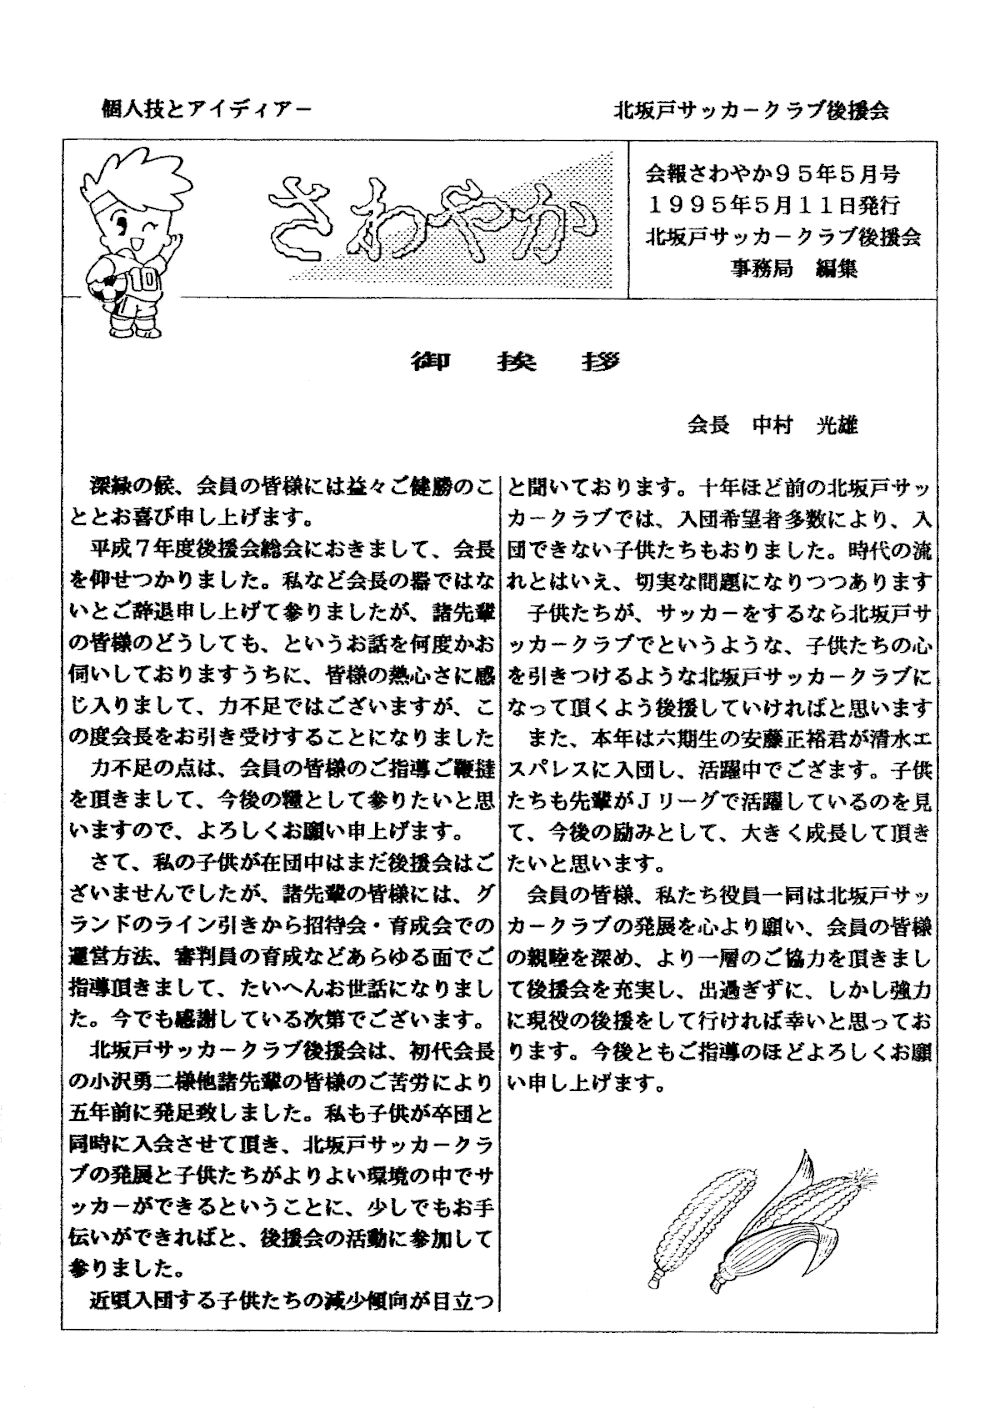 個人技とアイディアー
北坂戸サッカークラブ後援会
さわやか
会報さわやか95年5月号
1995年5月11日発行
北坂戸サッカークラブ後援会
事務局　編集
10
御　挨　拶
会長　中村　光雄
　深緑の候、会員の皆様には益々ご健勝のこ
ととお喜び申し上げます。
　平成7年度後援会総会におきまして、会長
を仰せつかりました。私など会長の器ではな
いとご辞退申し上げて参りましたが、諸先輩
の皆様のどうしても、というお話を何度かお
伺いしておりますうちに、皆様の熱心さに感
じ入りまして、力不足ではございますが、こ
の度会長をお引き受けすることになりました
　力不足の点は、会員の皆様のご指導ご鞭撻
を頂きまして、今後の糧として参りたいと思
いますので、よろしくお願い申上げます。
　さて、私の子供が在団中はまだ後援会はご
ざいませんでしたが、諸先輩の皆様には、グ
ランドのライン引きから招待会・育成会での
運営方法、審判員の育成などあらゆる面でご
指導頂きまして、たいへんお世話になりまし
た。今でも感謝している次第でございます。
　北坂戸サッカークラブ後援会は、初代会長
の小沢勇二様他諸先輩の皆様のご苦労により
五年前に発足致しました。私も子供が卒団と
同時に入会させて頂き、北坂戸サッカークラ
ブの発展と子供たちがよりよい環境の中でサ
ッカーができるということに、少しでもお手
伝いができればと、後援会の活動に参加して
参りました。
　近頃入団する子供たちの減少傾向が目立つ
と聞いております。十年ほど前の北坂戸サッ
カークラブでは、入団希望者多数により、入
団できない子供たちもおりました。時代の流
れとはいえ、切実な問題になりつつあります
　子供たちが、サッカーをするなら北坂戸サ
ッカークラブでというような、子供たちの心
を引きつけるような北坂戸サッカークラブに
なって頂くよう後援していければと思います
　また、本年は六期生の安藤正裕君が清水エ
スパレスに入団し、活躍中でござます。子供
たちも先輩がJリーグで活躍しているのを見
て、今後の励みとして、大きく成長して頂き
たいと思います。
　会員の皆様、私たち役員一同は北坂戸サッ
カークラブの発展を心より願い、会員の皆様
の親睦を深め、より一層のご協力を頂きまし
て後援会を充実し、出過ぎずに、しかし強力
に現役の後援をして行ければ幸いと思ってお
ります。今後ともご指導のほどよろしくお願
い申し上げます。